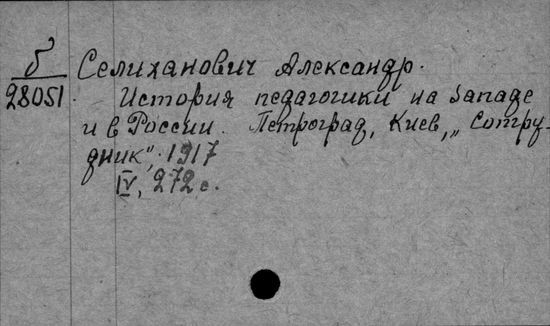 б
28051.
Селиханович Александр.
История педагогики на Западе
и в России. Петроград, Киев, „Сотру-
дник", 1917
IV, 272 с.